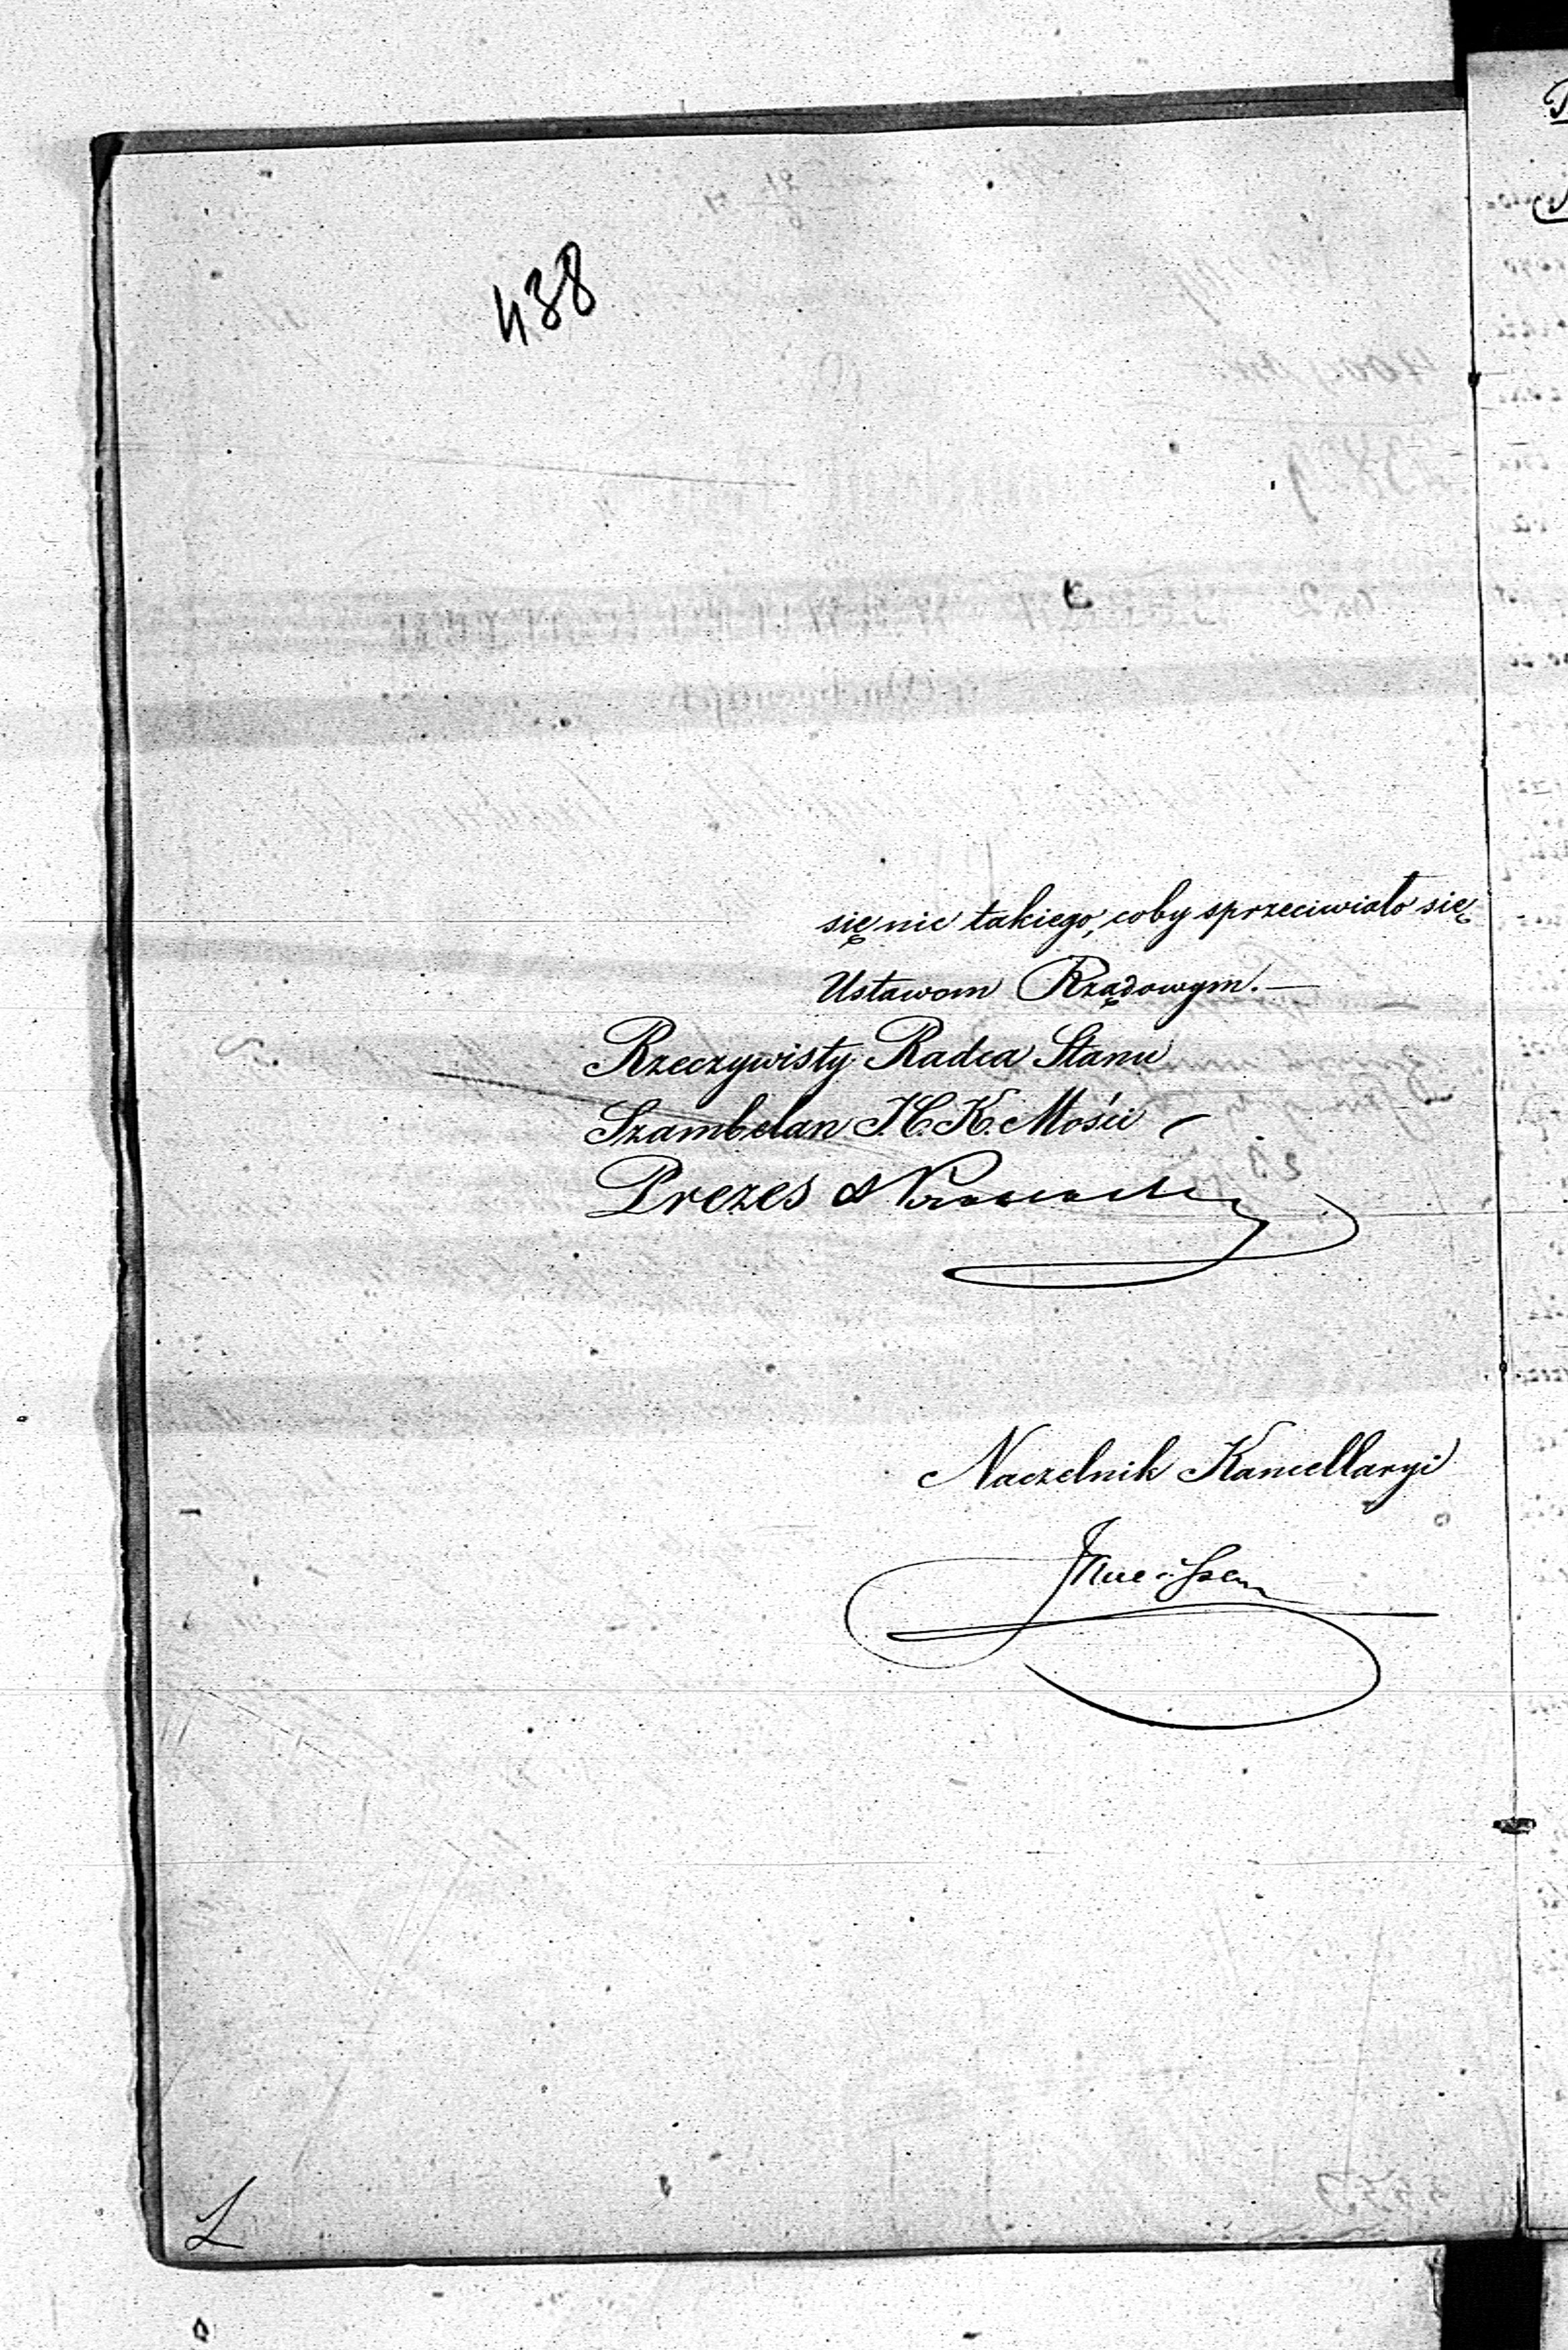 438
się nic takiego, coby sprzeciwiało się
Ustawom Rządowym. —
Rzeczywisty Radca Stanu
Szambelan J.C.K. Mości
Prezes
Naczelnik Kancellaryi
L